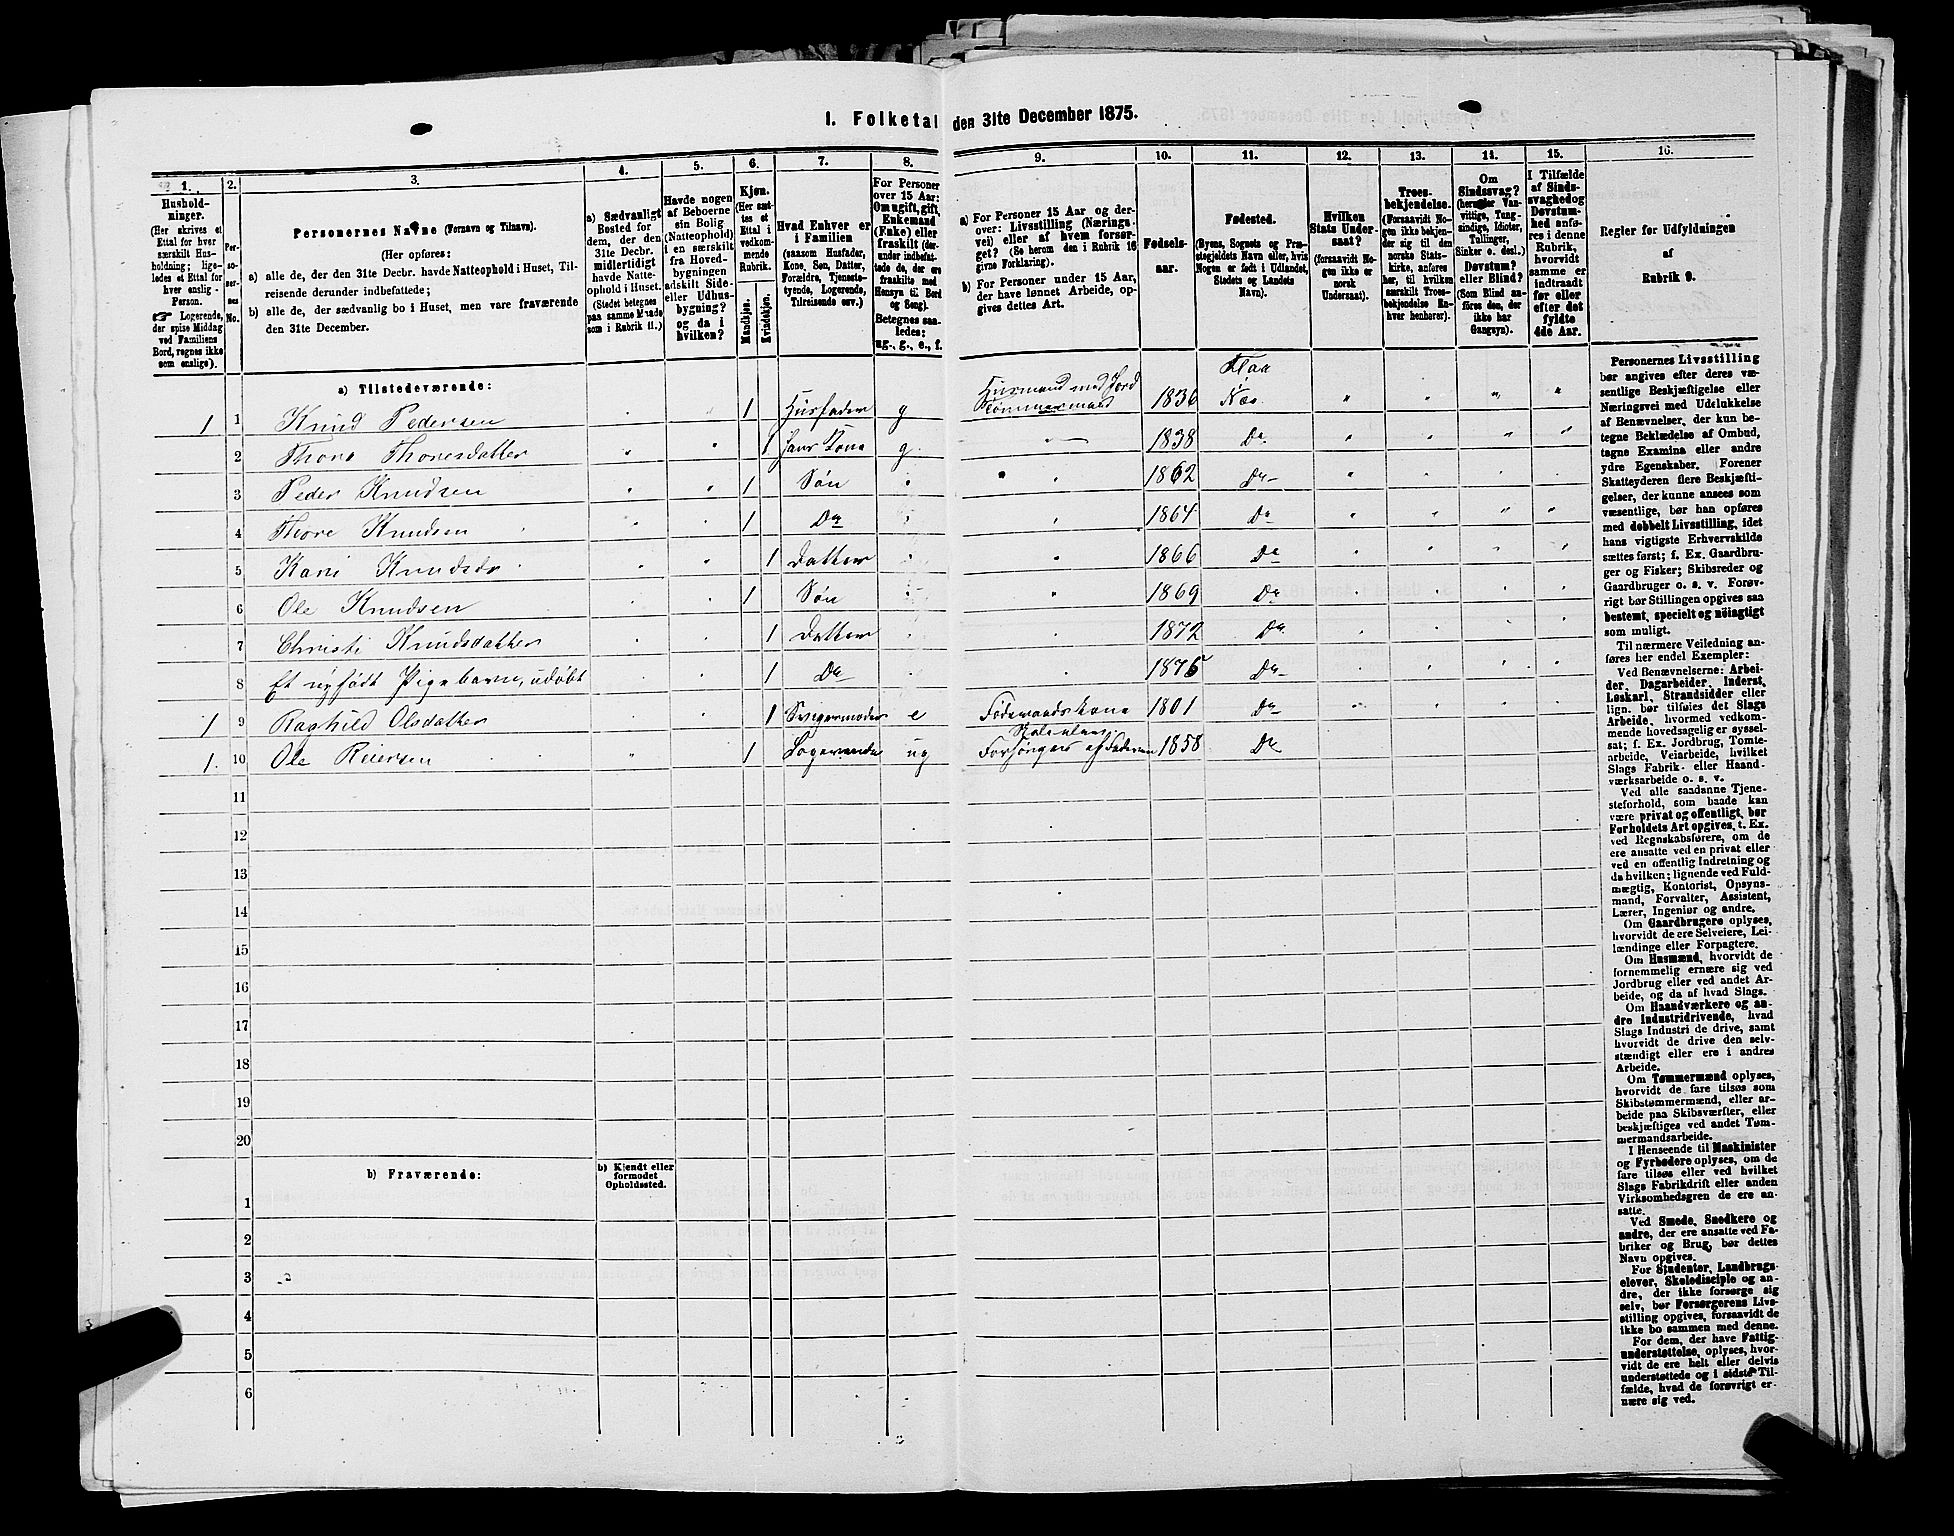 1. Folketal den 31te December 1875.
1.
2.
3.
4.
5.
6.
7.
8.
9.
10.
11.
12.
13.
14.
15.
16.
Hushold-
ninger.
(Her skrives et
Ettal for hver
særskilt Hus-
holdning; lige-
ledes et Ettal for
hver enslig
Person.
☞ Logerende,
der spise Middag
ved Familiens
Bord, regnes ikke
som enslige).
Per-
so-
ner-
nes
No.
Personernes Navne (Fornavn og Tilnavn).
(Her opføres:
a) alle de, der den 31te Decbr. havde Natteophold i Huset, Til-
reisende derunder indbefattede;
b) alle de, der sædvanlig bo i Huset, men vare fraværende
den 31te December.
a) Sædvanligt
Bosted for
dem, der den
31te Decbr.
midlertidigt
havde Natte-
ophold i Huset.
(Stedet betegnes
paa samme Maade
som i Rubrik 11.)
Havde nogen
af Beboerne
sin Bolig
(Natteophold)
i en særskilt
fra Hoved-
bygningen
adskilt Side-
eller Udhus-
bygning?
og da i
hvilken?
Kjøn.
(Her sæt-
tes et
Ettal i
vedkom-
mende
Rubrik.
Mandkjøn.
Kvindekjøn.
Hvad Enhver er
i Familien
(saasom Husfader,
Kone, Søn, Datter,
Forældre, Tjeneste-
tyende, Logerende,
Tilreisende osv.)
For Personer
over 15 Aar:
Om ugift, gift,
Enkemand
(Enke) eller
fraskilt (der-
under indbefat-
tede de, der ere
fraskilte med
Hensyn til Bord
og Seng).
Betegnes saa-
ledes:
ug., g., e., f.
a) For Personer 15 Aar og der-
over: Livsstilling (Nærings-
vei) eller af hvem forsør-
get? (Se herom den i Rubrik 16
givne Forklaring).
b) For Personer under 15 Aar,
der have lønnet Arbeide, op-
gives dettes Art.
Fødsels-
aar.
Fødested.
(Byens, Sognets og Præ-
stegjeldets Navn eller, hvis
Nogen er født i Udlandet,
Stedets og Landets
Navn).
Hvilken
Stats Under-
saat?
(forsaavidt No-
gen ikke er
norsk
Undersaat).
Troes-
bekjendelse.
(Forsaavidt No-
gen ikke bekjen-
der sig til den
norske Stats-
kirke, anføres
her, til hvilken
særskilt Troes-
bekjendelse En-
hver henhører).
Om
Sindssvag?
(herunder Van-
vittige, Tung-
sindige, Idioter,
Tullinger,
Sinker o. desl.).
Døvstum?
eller Blind?
(Som Blind an-
føres den, der
ikke har
Gangsyn).
I Tilfælde
af Sinds-
svaghed og
Døvstum-
hed anfø-
res i denne
Rubrik,
hvorvidt
samme er
indtraadt
før eller
efter det
fyldte
4de Aar.
Regler for Udfyldningen
af
Rubrik 9.
a) Tilstedeværende:
1 1 Knud Pedersen 1 Husfader g Husmand med Jord Tømmermand 1836 Flaa Næs
2 Thora Thoresdatter 1 hans Kone g 1838 Do
3 Peder Knudsen 1 Søn 1862 Do
4 Thore Knudsen 1 Do 1864 Do
5 Kari Knudsdr 1 Datter 1866 Do
6 Ole Knudsen 1 Søn 1869 Do
7 Christi Knudsdatter 1 Datter 1872 Do
8 Et nyfødt Pigebarn, udøbt 1 Do 1875 Do
1 9 Raghild Olsdatter 1 Svigermoder e Føderaadskone 1801 Do
1 10 Ole Reiersen 1 Logerende ug Forsørges af Faderen 1858 Do
11
12
13
14
15
16
17
18
19
20
b) Fraværende:
b) Kjendt eller
formodet
Opholdssted.
1
2
3
4
5
6
Personernes Livsstilling
bør angives efter deres væ-
sentlige Beskjæftigelse eller
Næringsvei med Udelukkelse
af Benævnelser, der kun be-
tegne Beklædelse af Ombud,
tagne Examina eller andre
ydre Egenskaber. Forener
Skatteyderen flere Beskjæfti-
gelser, der kunne ansees som
væsentlige, bør han opføres
med dobbelt Livsstilling, idet
hans vigtigste Erhvervskilde
sættes først; f. Ex. Gaardbru-
ger og Fisker; Skibsreder og
Gaardbruger o. s. v. Forøv-
rigt bør Stillingen opgives saa
bestemt, specielt og nöiagtigt
som muligt.
Til nærmere Veiledning an-
føres her endel Exempler:
Ved Benævnelserne: Arbei-
der, Dagarbeider, Inderst,
Løskarl, Strandsidder eller
lign. bør tilføies det Slags
Arbeide, hvormed vedkom-
mende hovedsagelig er syssel-
sat; f. Ex. Jordbrug, Tomte-
arbeide, Veiarbeide, hvilket
Slags Fabrik- eller Haand-
værksarbeide o. s. v.
Ved alle saadanne Tjene-
steforhold, som baade kan
være privat og offentligt, bør
Forholdets Art opgives, t. Ex.
ved Regnskabsførere, om de
ere ansatte ved en privat eller
ved en offentlig Indretning og
da hvilken; lignende ved Fuld-
mægtig, Kontorist, Opsyns-
mand, Forvalter, Assistent,
Lærer, Ingeniør og andre.
Om Gaardbrugere oplyses,
hvorvidt de ere Selveiere, Lei-
lændinge eller Forpagtere.
Om Husmænd, hvorvidt de
fornemmelig ernære sig ved
Jordbrug eller ved andet Ar-
beide, og da af hvad Slags.
Om Haandværkere og an-
dre Industridrivende, hvad
Slags Industri de drive, samt
hvorvidt de drive den selv-
stændigt eller ere i andres
Arbeide.
Om Tømmermænd oplyses,
hvorvidt de fare tilsøs som
Skibstømmermænd, eller ar-
beide paa Skibsværfter, eller
beskjæftiges ved andet Tøm-
mermandsarbeide.
I Henseende til Maskinister
og Fyrbødere oplyses, om de
fare tilsøs eller ved hvilket
Slags Fabrikdrift eller anden
Virksomhedsgren de ere an-
satte.
Ved Smede, Snedkere og
andre, der ere ansatte ved Fa-
briker og Brug, bør dettes
Navn opgives.
For Studenter, Landbrugs-
elever, Skoledisciple og an-
dre, der ikke forsørge sig
selv, bør Forsørgerens Livs-
stilling opgives, forsaavidt de
ikke bo sammen med denne.
For dem, der have Fattig-
understøttelse, oplyses, hvor-
vidt de ere helt eller delvis
understøttede og i sidste Til-
fælde, hvad de forøvrigt er-
nære sig ved.